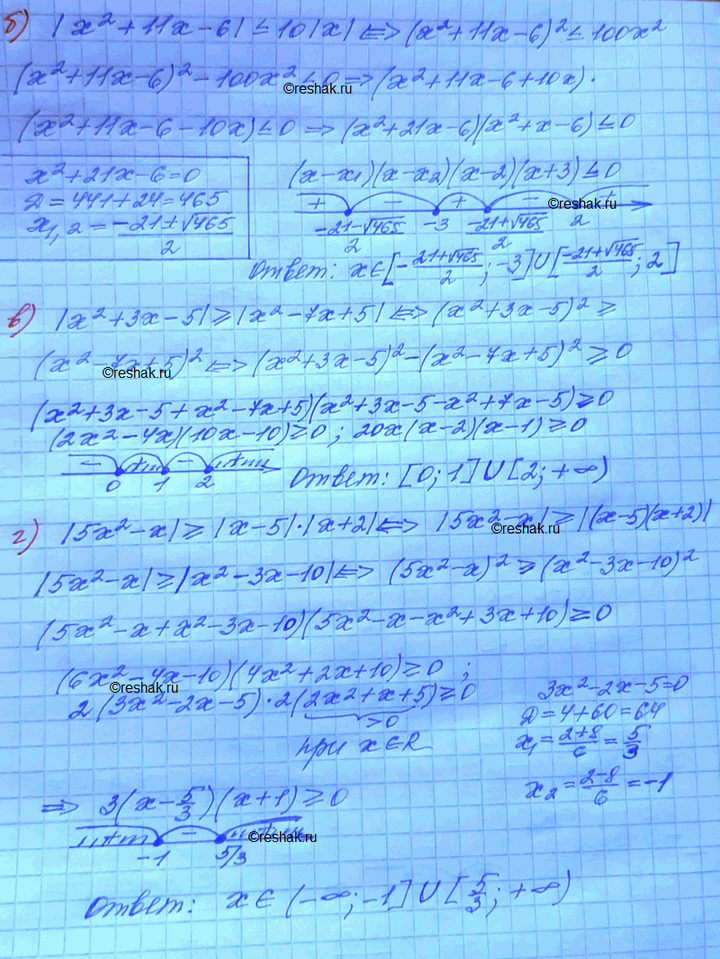 б) |x²+11x-6| ≤ 10|x| ⇔ (x²+11x-6)² ≤ 100x²
(x²+11x-6)² - 100x² ≤ 0 ⇒ (x²+11x-6+10x)·
©reshak.ru
(x²+11x-6-10x) ≤ 0 ⇒ (x²+21x-6)(x²+x-6) ≤ 0
x²+21x-6=0
Д=441+24=465
x₁,₂ = (-21±√465)/2
(x-x₁)(x-x₂)(x-2)(x+3) ≤ 0
+ - + - +
©reshak.ru
(-21-√465)/2 -3 (-21+√465)/2 2
Ответ: x∈[-(21+√465)/2; -3]∪[(-21+√465)/2; 2]
в) |x²+3x-5| ≥ |x²-7x+5| ⇔ (x²+3x-5)² ≥
(x²-7x+5)² ⇔ (x²+3x-5)² - (x²-7x+5)² ≥ 0
©reshak.ru
(x²+3x-5+x²-7x+5)(x²+3x-5-x²+7x-5) ≥ 0
(2x²-4x)(10x-10) ≥ 0; 20x(x-2)(x-1) ≥ 0
- + - +
0 1 2
Ответ: [0; 1]∪[2; +∞)
г) |5x²-x| ≥ |x-5|·|x+2| ⇔ |5x²-x| ≥ |(x-5)(x+2)|
©reshak.ru
|5x²-x| ≥ |x²-3x-10| ⇔ (5x²-x)² ≥ (x²-3x-10)²
(5x²-x+x²-3x-10)(5x²-x-x²+3x+10) ≥ 0
(6x²-4x-10)(4x²+2x+10) ≥ 0;
©reshak.ru
2(3x²-2x-5)·2(2x²+x+5) ≥ 0
>0
при x∈R
3x²-2x-5=0
Д=4+60=64
x₁ = (2+8)/6 = 5/3
x₂ = (2-8)/6 = -1
⇒ 3(x-5/3)(x+1) ≥ 0
+ - +
©reshak.ru
-1 5/3
Ответ: x∈(-∞; -1]∪[5/3; +∞)